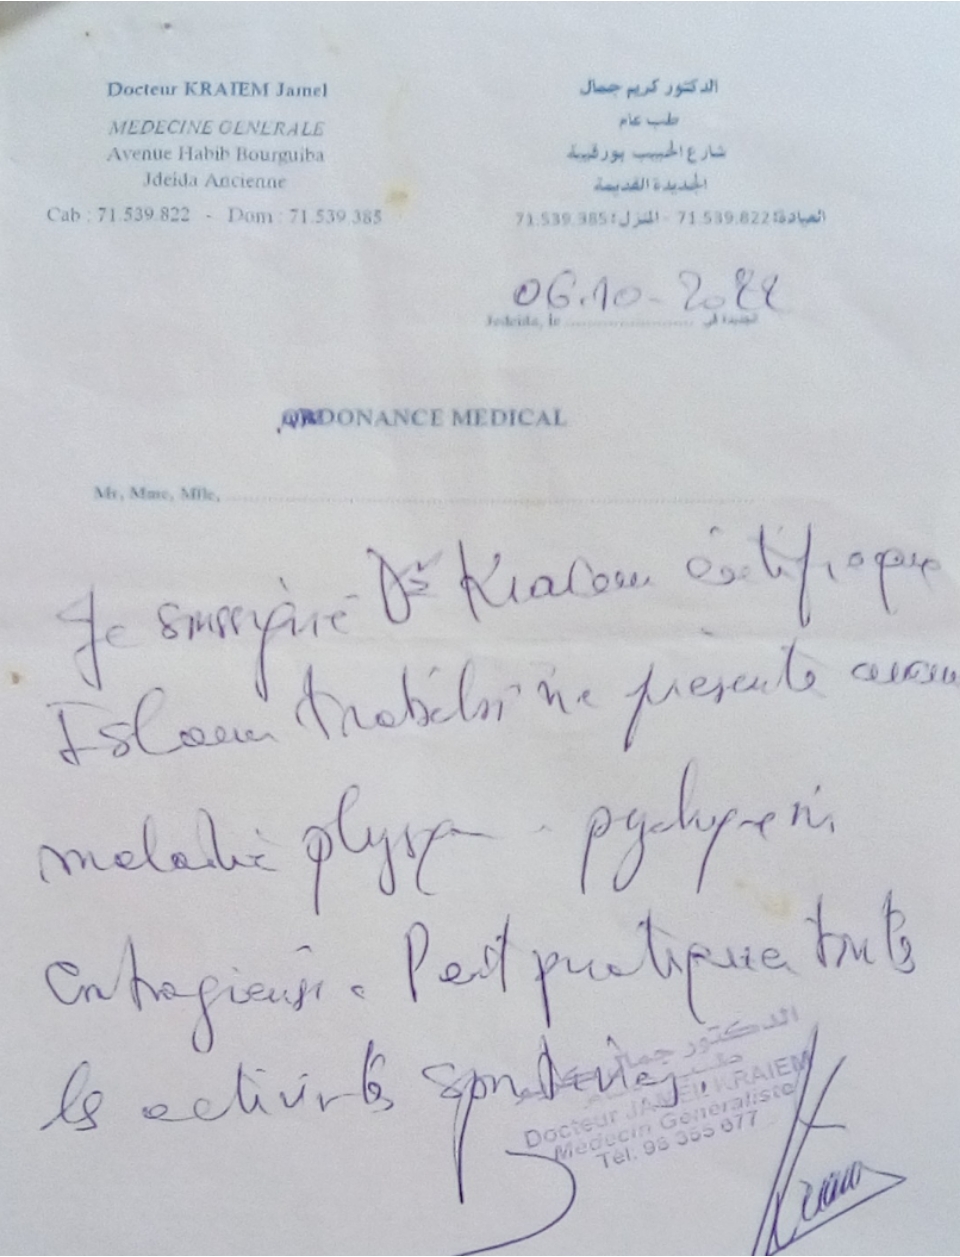 Docteur KRAIEM Jamel
MEDECINE GENERALE
Avenue Habib Bourguiba
Jdeida Ancienne
Cab : 71.539.822 - Dom : 71.539.385
الدكتور كريم جمال
طب عام
شارع الحبيب بورقيبة
الجديدة القديمة
العيادة: 71.539.822 - المنزل: 71.539.385
06.10-2022
Jedeida, le ........................ الجديدة في
ORDONANCE MEDICAL
Mr, Mme, Mlle, ........................
Je soussigné Dr Kraiem certifie que
Islam trabelsi ne présente aucun
maladie physique - psychique ni
contagieuse. Peut pratiquer toutes
les activités sportives.
الدكتور جمال
طب
Docteur JAMEL KRAIEM
Médecin Généraliste
Tél: 98 355 677